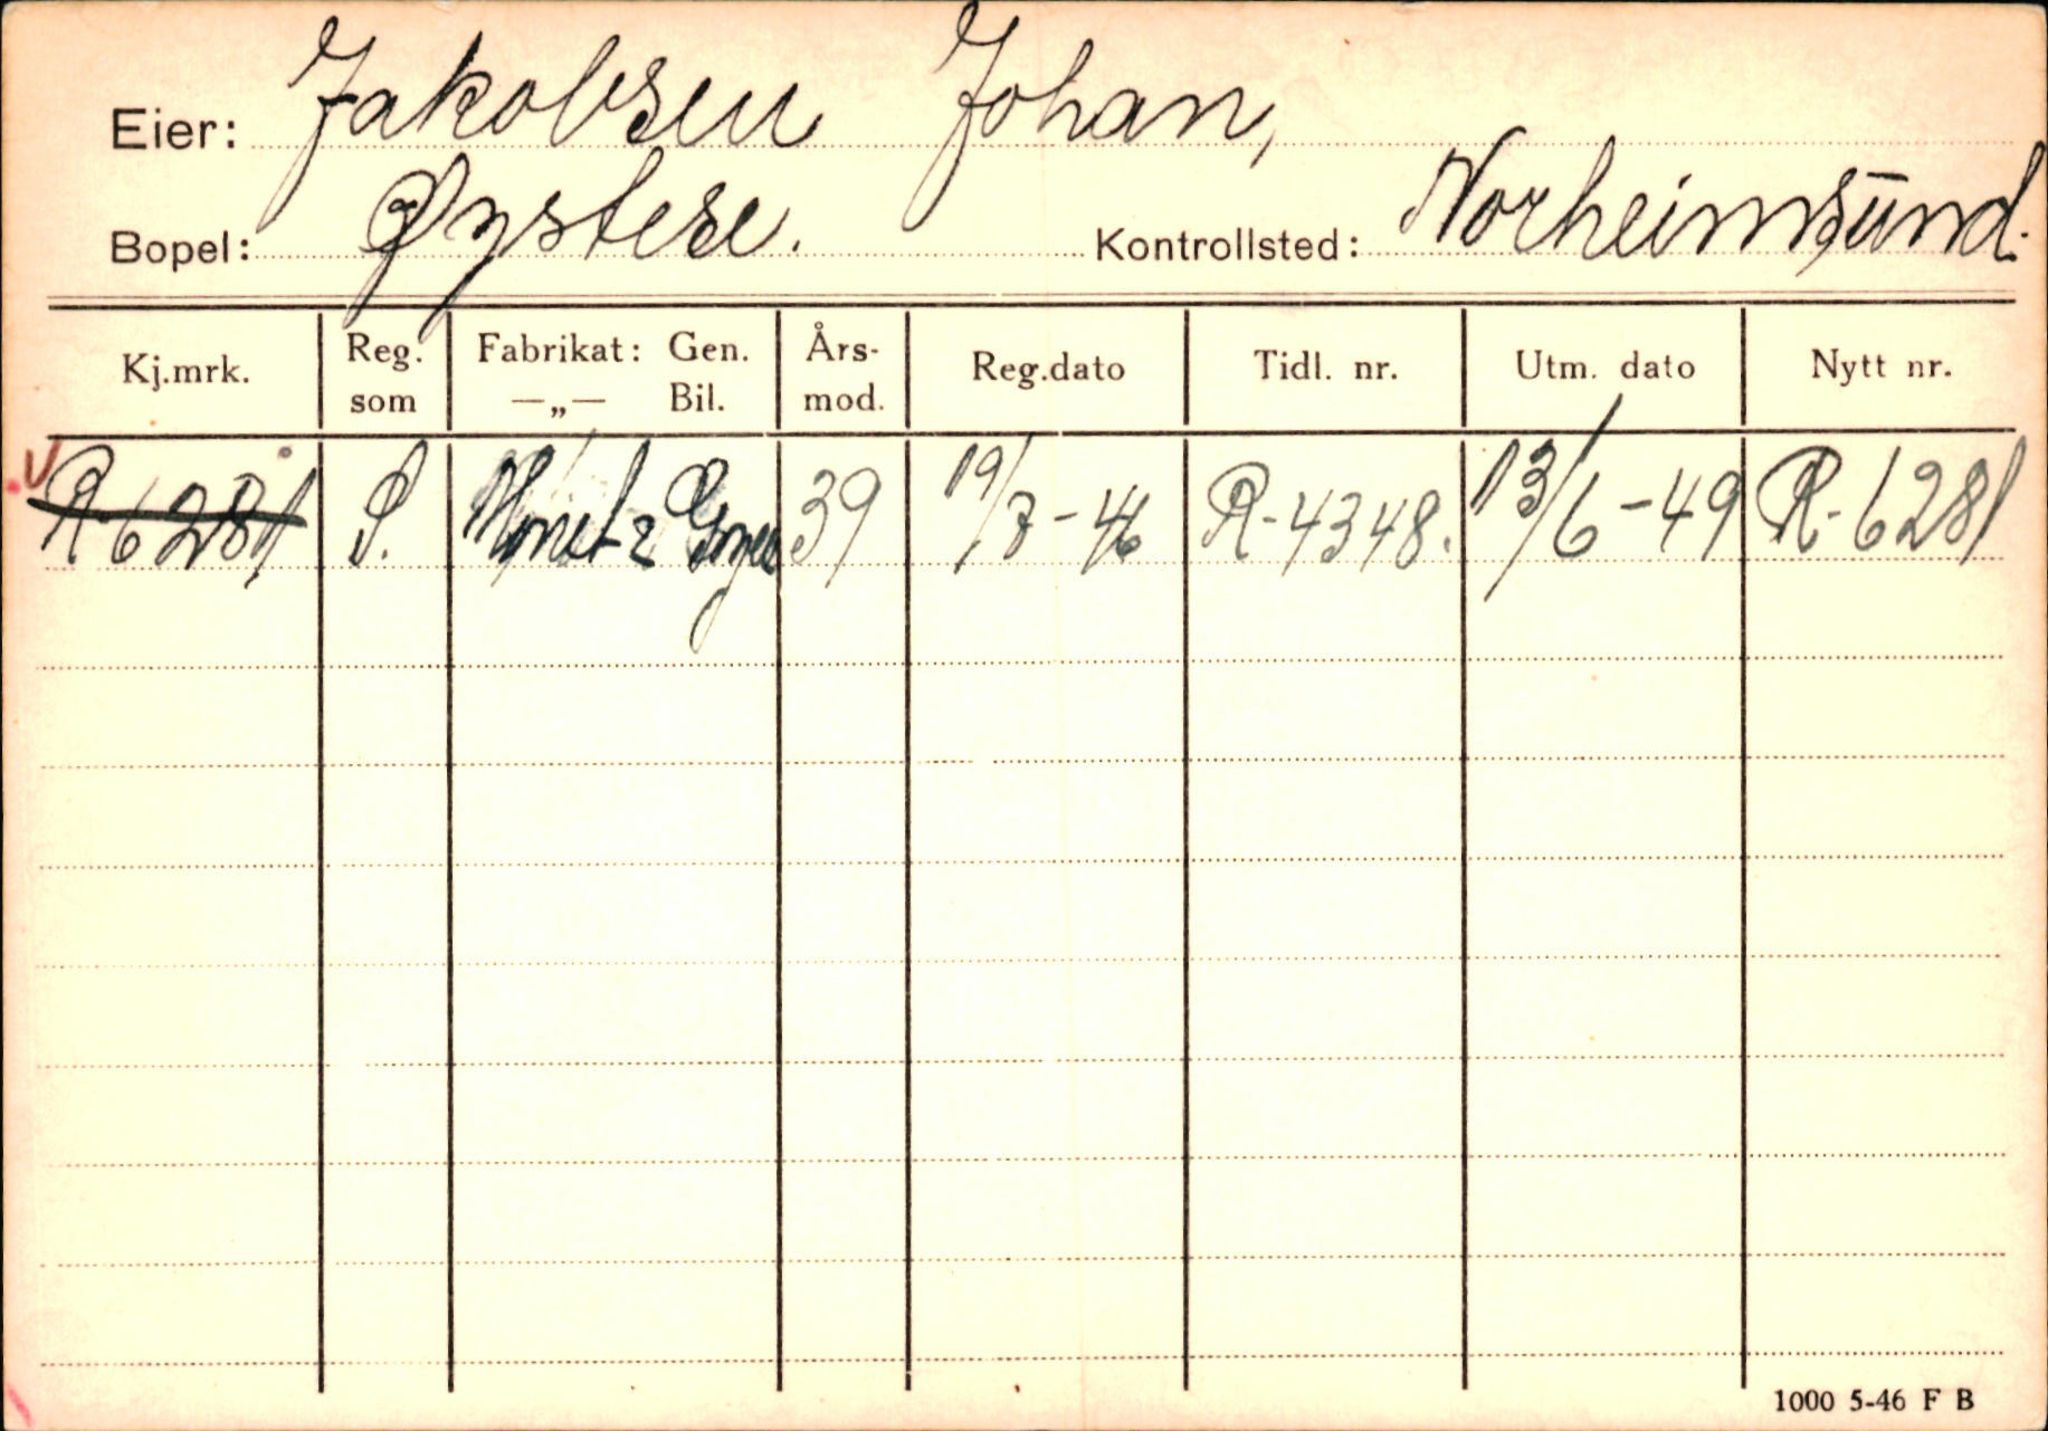 Eier: Jakobsen Johan,
Bopel: Øystese. Kontrollsted: Norheimsund.
Kj.mrk. Reg. som Fabrikat: Gen. —„— Bil. Års-mod. Reg.dato Tidl. nr. Utm. dato Nytt nr.
R-6281 S. 39 19/7-46 R-4348. 13/6-49 R-6281
1000 5-46 F B